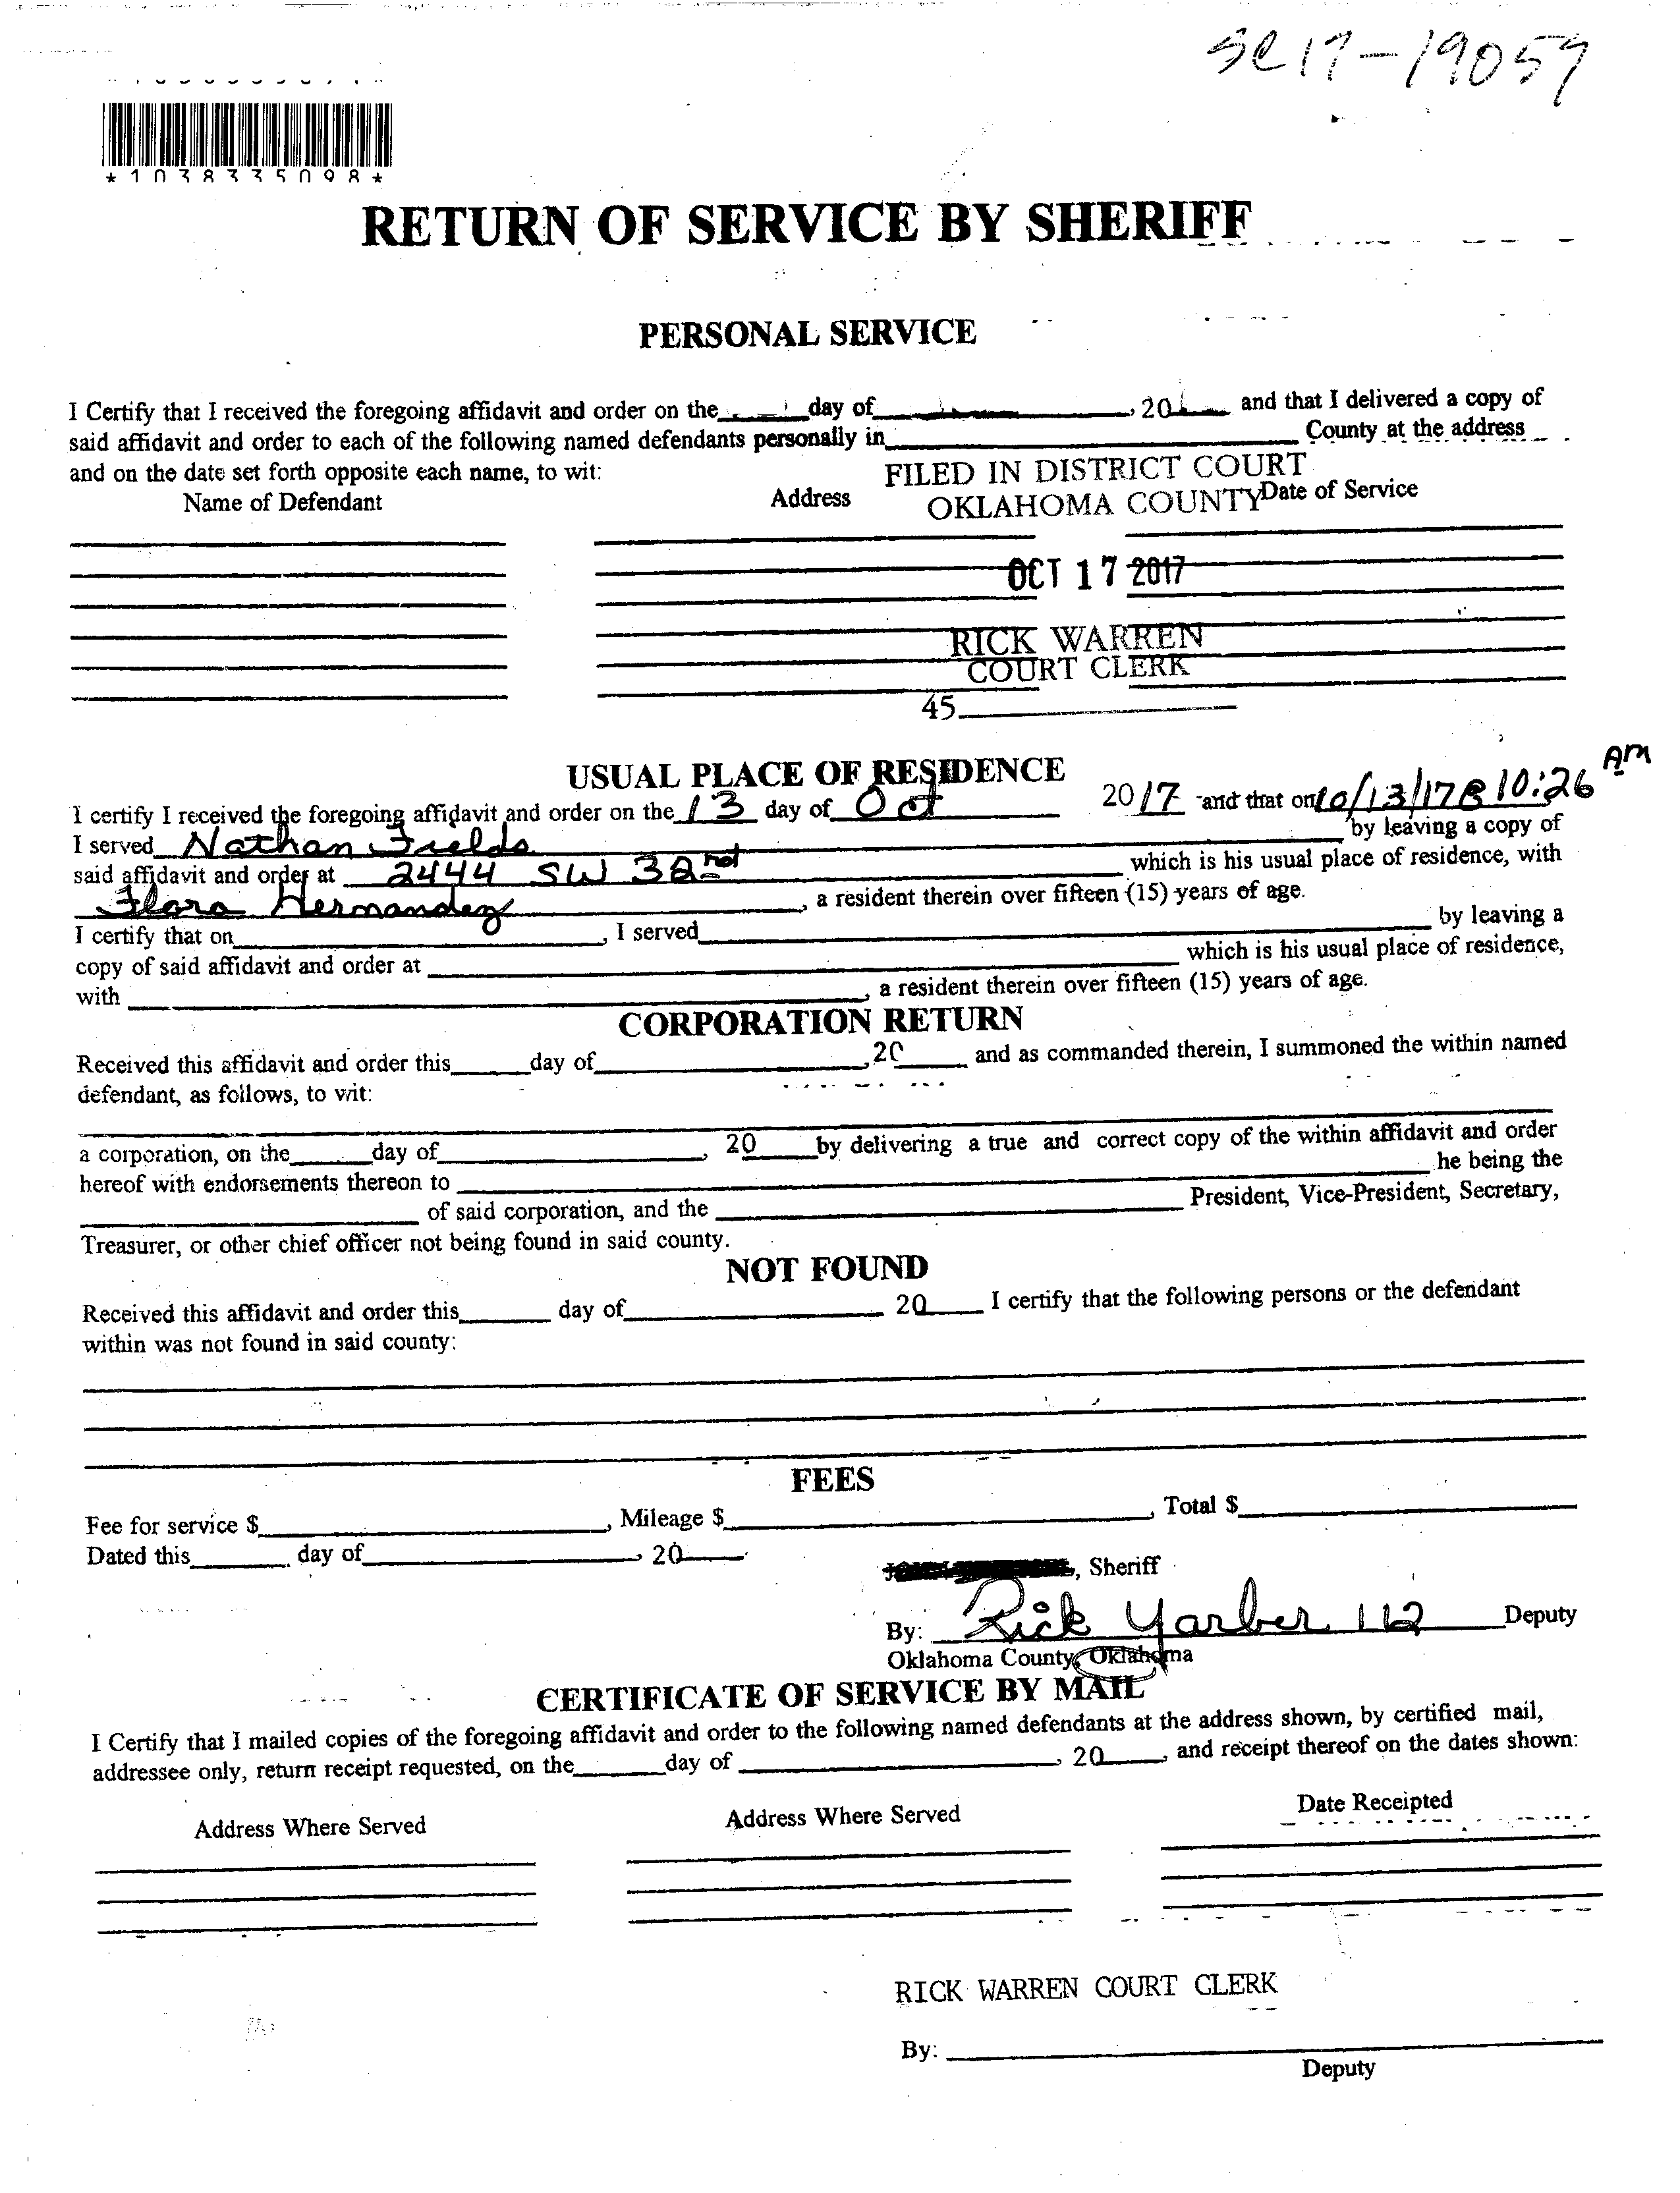 SC 17-19059
*1038335098*
RETURN OF SERVICE BY SHERIFF
PERSONAL SERVICE
I Certify that I received the foregoing affidavit and order on the day of , 20 and that I delivered a copy of
said affidavit and order to each of the following named defendants personally in County at the address
and on the date set forth opposite each name, to wit:
FILED IN DISTRICT COURT
Name of Defendant Address Date of Service
OKLAHOMA COUNTY
OCT 17 2017
RICK WARREN
COURT CLERK
45
USUAL PLACE OF RESIDENCE
I certify I received the foregoing affidavit and order on the 13 day of Oct 2017 and that on 10/13/17 @ 10:26 AM
I served Nathan Fields by leaving a copy of
said affidavit and order at 2444 SW 32nd which is his usual place of residence, with
Flora Hernandez , a resident therein over fifteen (15) years of age.
I certify that on , I served by leaving a
copy of said affidavit and order at which is his usual place of residence,
with , a resident therein over fifteen (15) years of age.
CORPORATION RETURN
Received this affidavit and order this day of , 20 and as commanded therein, I summoned the within named
defendant, as follows, to wit:
a corporation, on the day of , 20 by delivering a true and correct copy of the within affidavit and order
hereof with endorsements thereon to he being the
of said corporation, and the President, Vice-President, Secretary,
Treasurer, or other chief officer not being found in said county.
NOT FOUND
Received this affidavit and order this day of 20 I certify that the following persons or the defendant
within was not found in said county:
FEES
Fee for service $ , Mileage $ , Total $
Dated this day of , 20
, Sheriff
By: Rick Yarber 112 Deputy
Oklahoma County, Oklahoma
CERTIFICATE OF SERVICE BY MAIL
I Certify that I mailed copies of the foregoing affidavit and order to the following named defendants at the address shown, by certified mail,
addressee only, return receipt requested, on the day of , 20 , and receipt thereof on the dates shown:
Address Where Served Address Where Served Date Receipted
RICK WARREN COURT CLERK
By:
Deputy